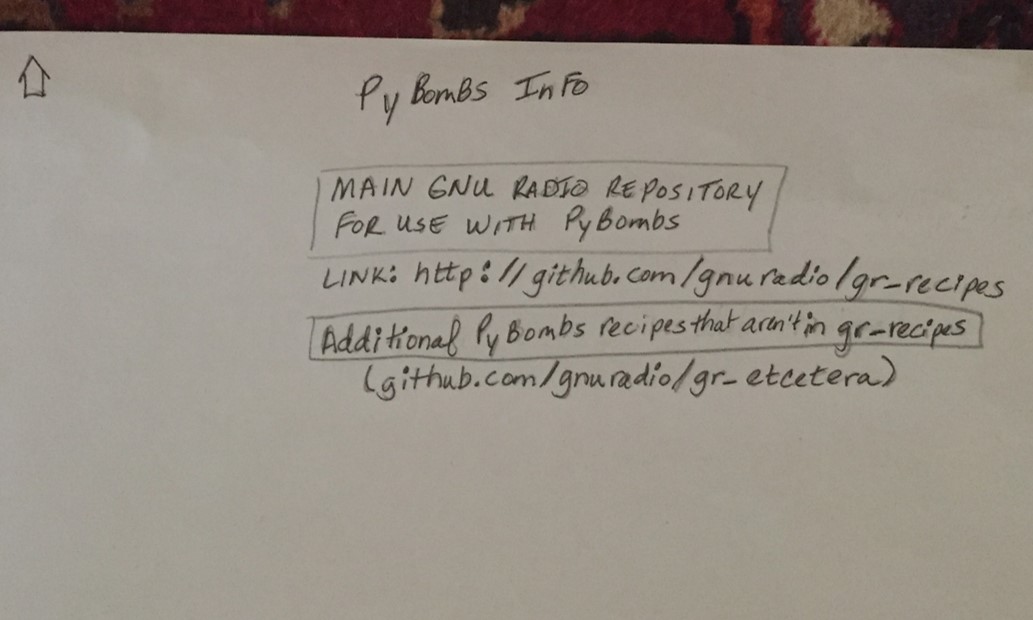 PyBombs Info
MAIN GNU RADIO REPOSITORY
FOR USE WITH PyBombs
LINK: http://github.com/gnuradio/gr-recipes
Additional PyBombs recipes that aren't in gr-recipes
(github.com/gnuradio/gr-etcetera)